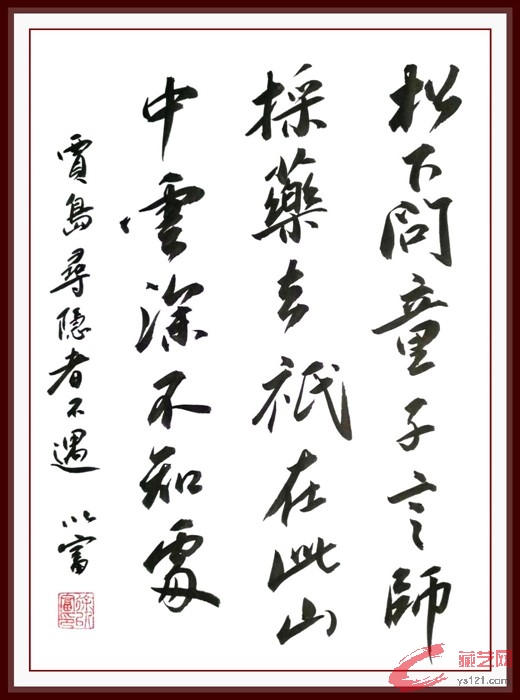 松下問童子言師
採藥去祇在此山
中雲深不知處
賈島尋隱者不遇 以富
藏艺网
ys121.com